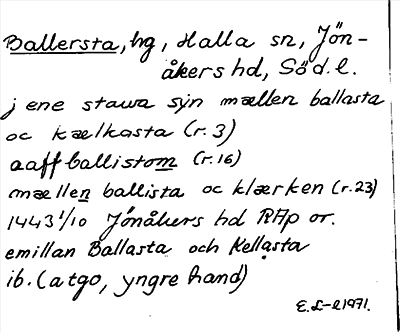 Ballersta, hg, Halla sn, Jön-
åkers hd, Söd. l.
j ene stawa syn mællen ballasta
oc kælkasta (r. 3)
aaff ballistom (r. 16)
mællen ballista oc klærken (r. 23)
1443 1/10 Jönåkers hd RAp or.
emillan Ballasta och Kellasta
ib. (atgo, yngre hand)
E. L-e 1971.